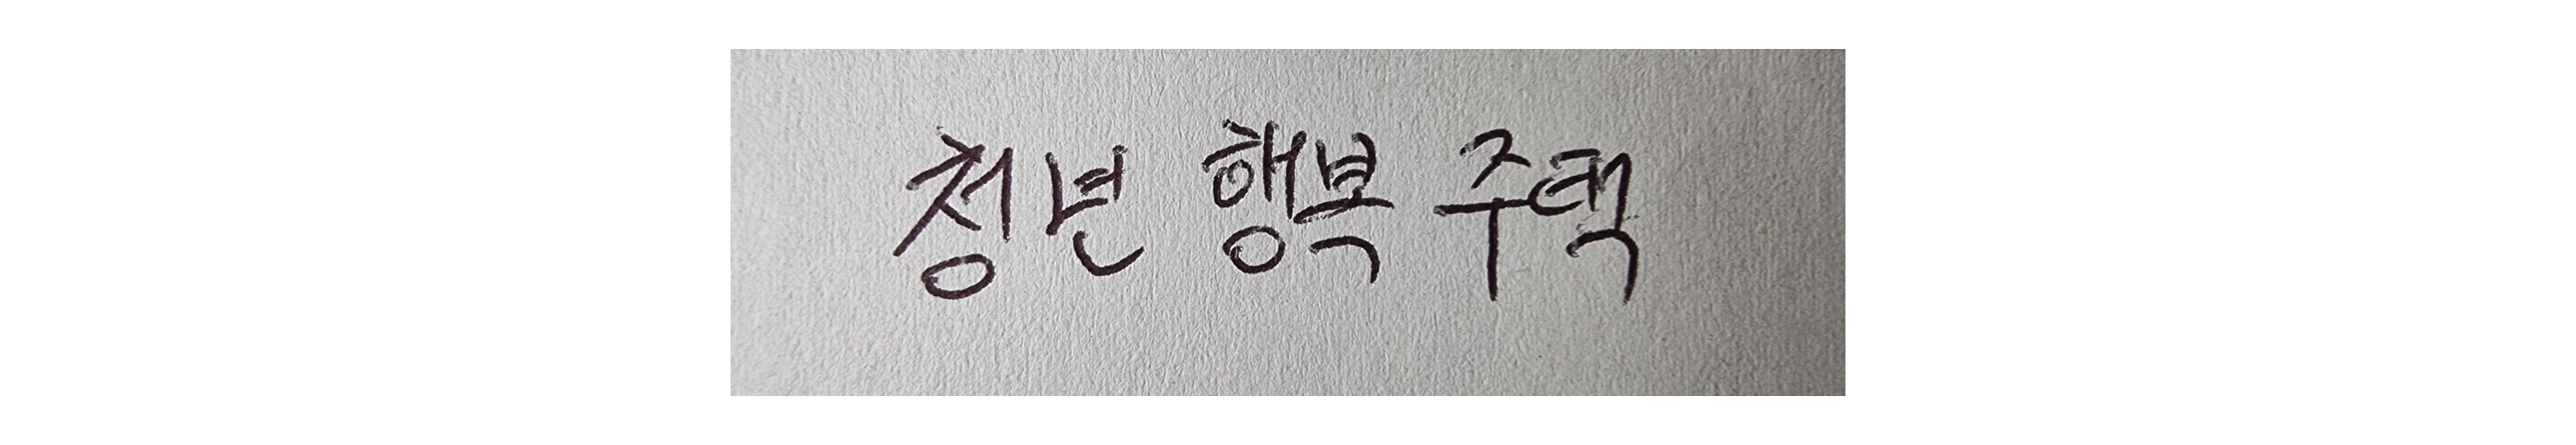 청년 행복 주택